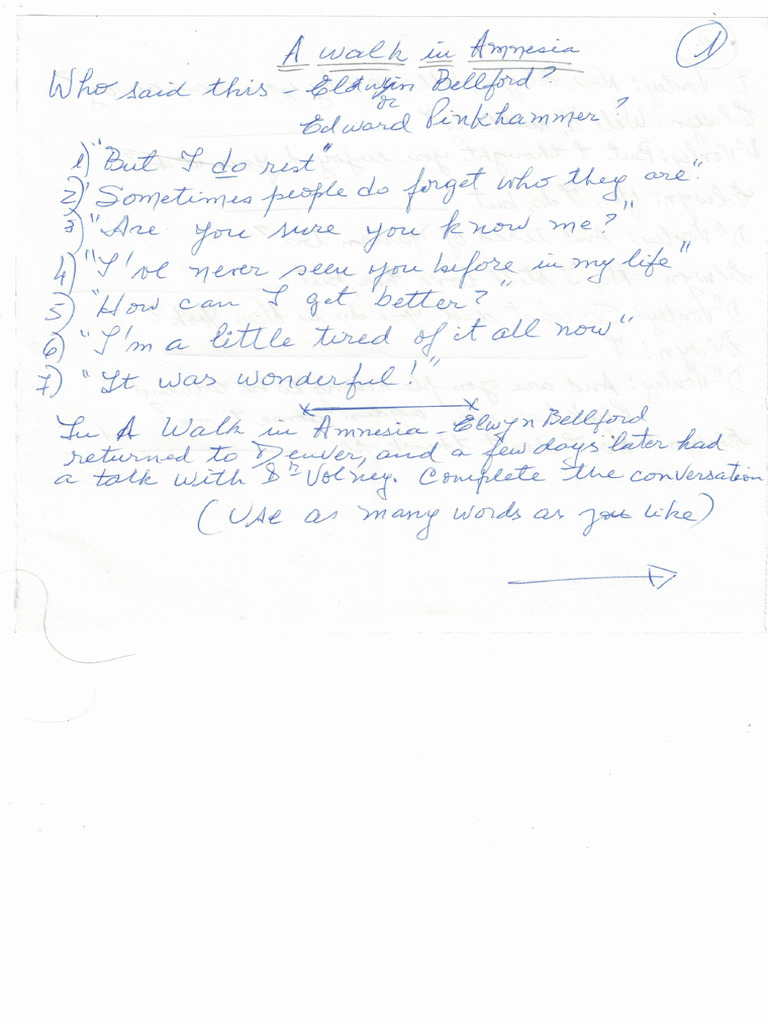 A walk in Amnesia
1
Who said this - Elwyin Bellford?
or
Edward Pinkhammer?
1) "But I do rest"
2) "Sometimes people do forget who they are".
3) "Are you sure you know me?"
4) "I've never seen you before in my life"
5) "How can I get better?"
6) "I'm a little tired of it all now"
7) "It was wonderful!"
In A Walk in Amnesia - Elwyn Bellford
returned to Denver, and a few days later had
a talk with Dr Volney. Complete the conversation
(Use as many words as you like)